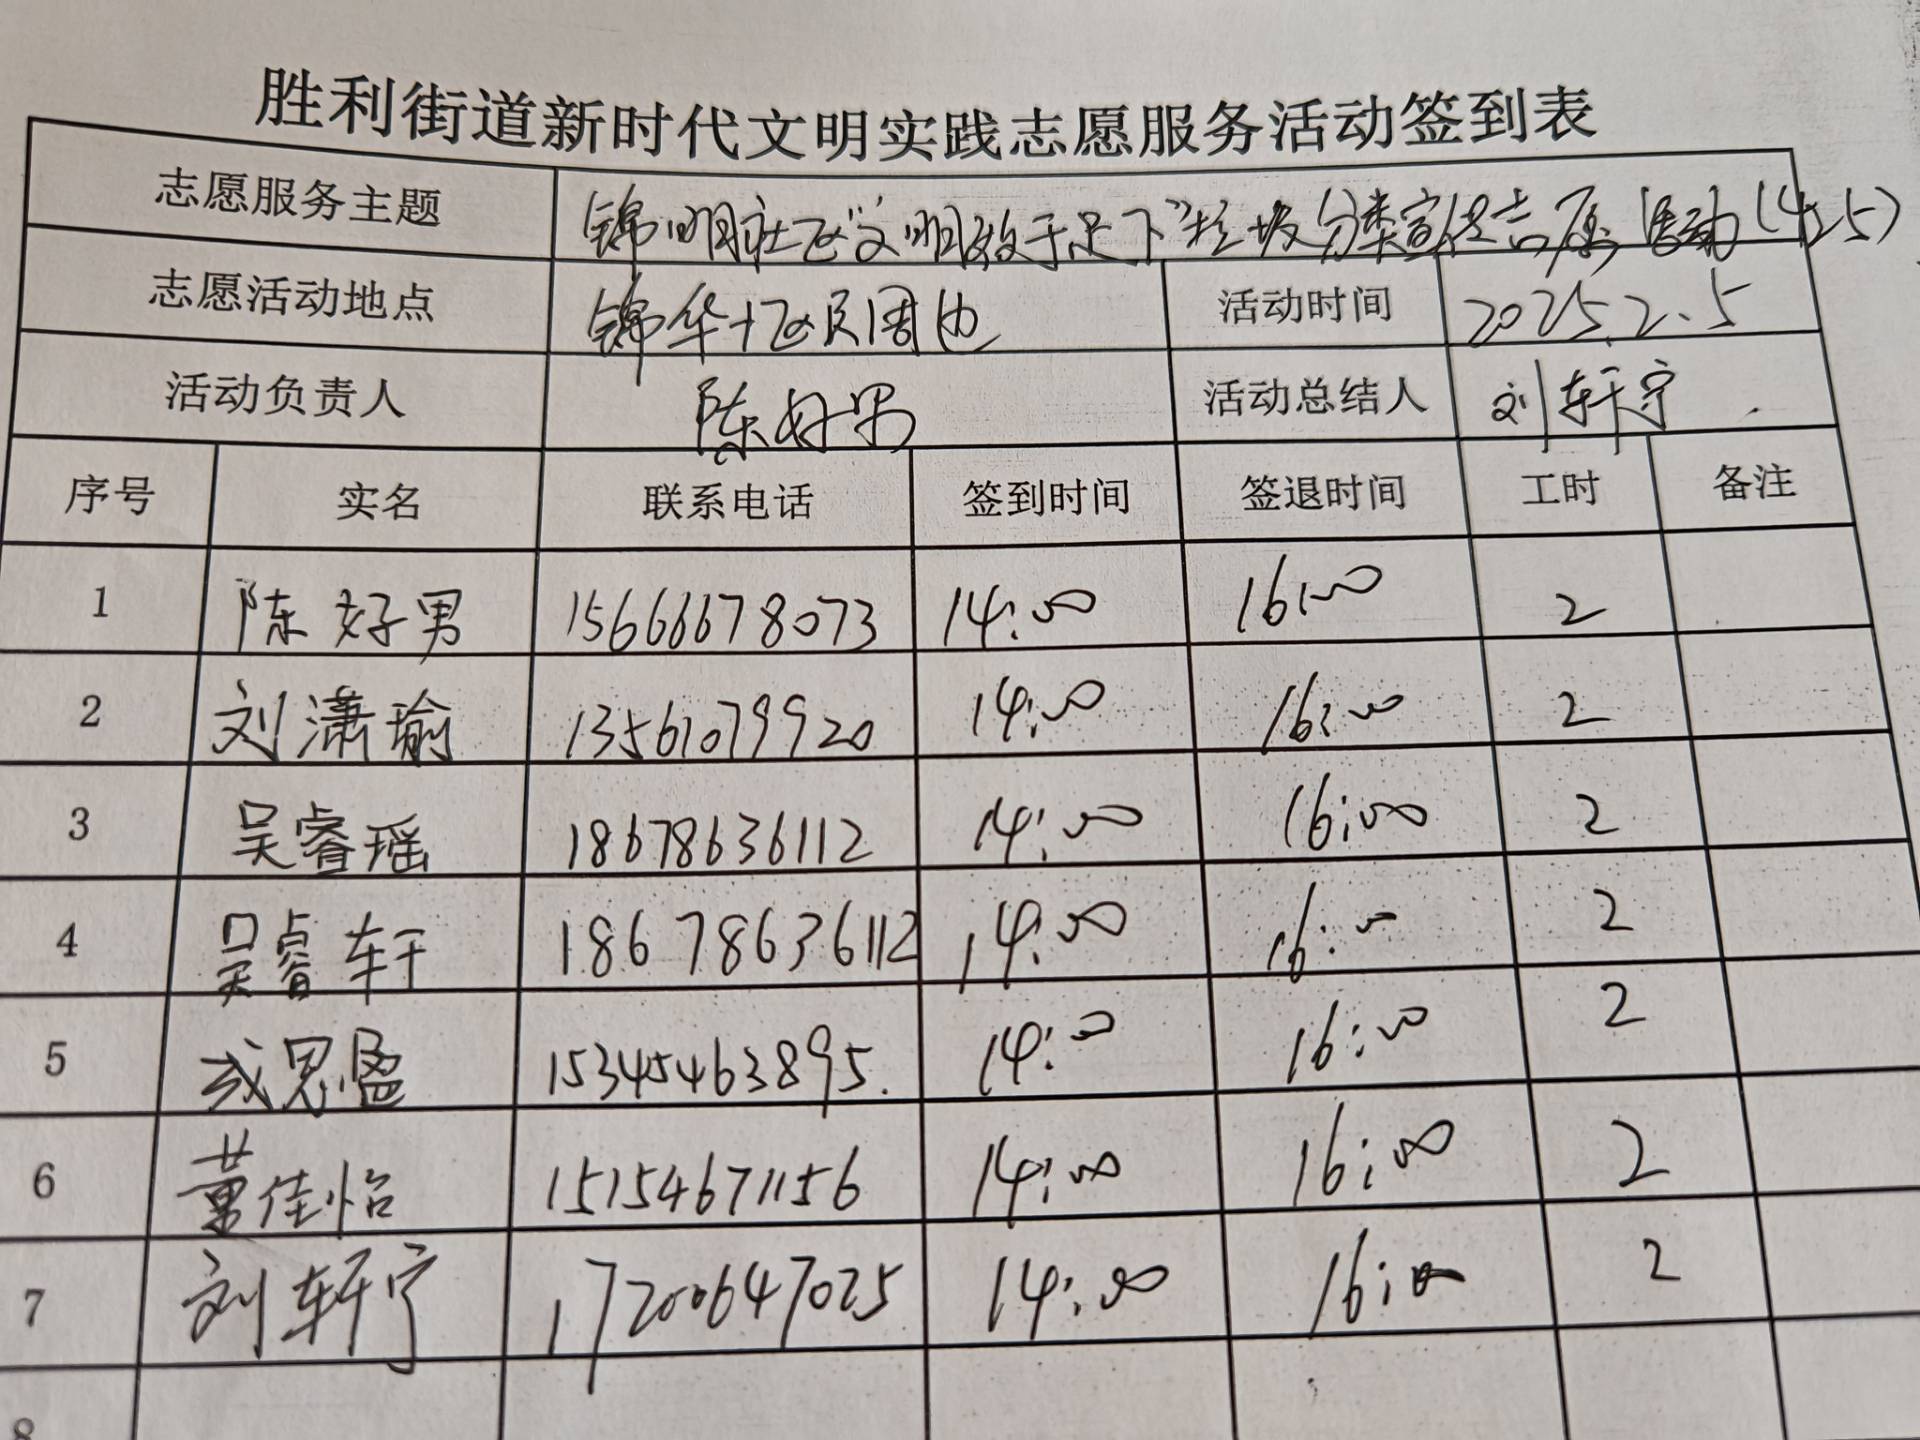 胜利街道新时代文明实践志愿服务活动签到表
志愿服务主题 锦明社区“文明致于足下”垃圾分类宣传志愿活动(425)
志愿活动地点 锦华十区及周边 活动时间 2025.2.5
活动负责人 陈好男 活动总结人 刘轩宁
序号 实名 联系电话 签到时间 签退时间 工时 备注
1 陈好男 15666678073 14:00 16:00 2
2 刘潇瑜 13561079920 14:00 16:00 2
3 吴睿瑶 18678636112 14:00 16:00 2
4 吴睿轩 18678636112 14:00 16:00 2
5 成思盈 15345463895. 14:00 16:00 2
6 董佳怡 15154671156 14:00 16:00 2
7 刘轩宁 17200647025 14:00 16:00 2
8